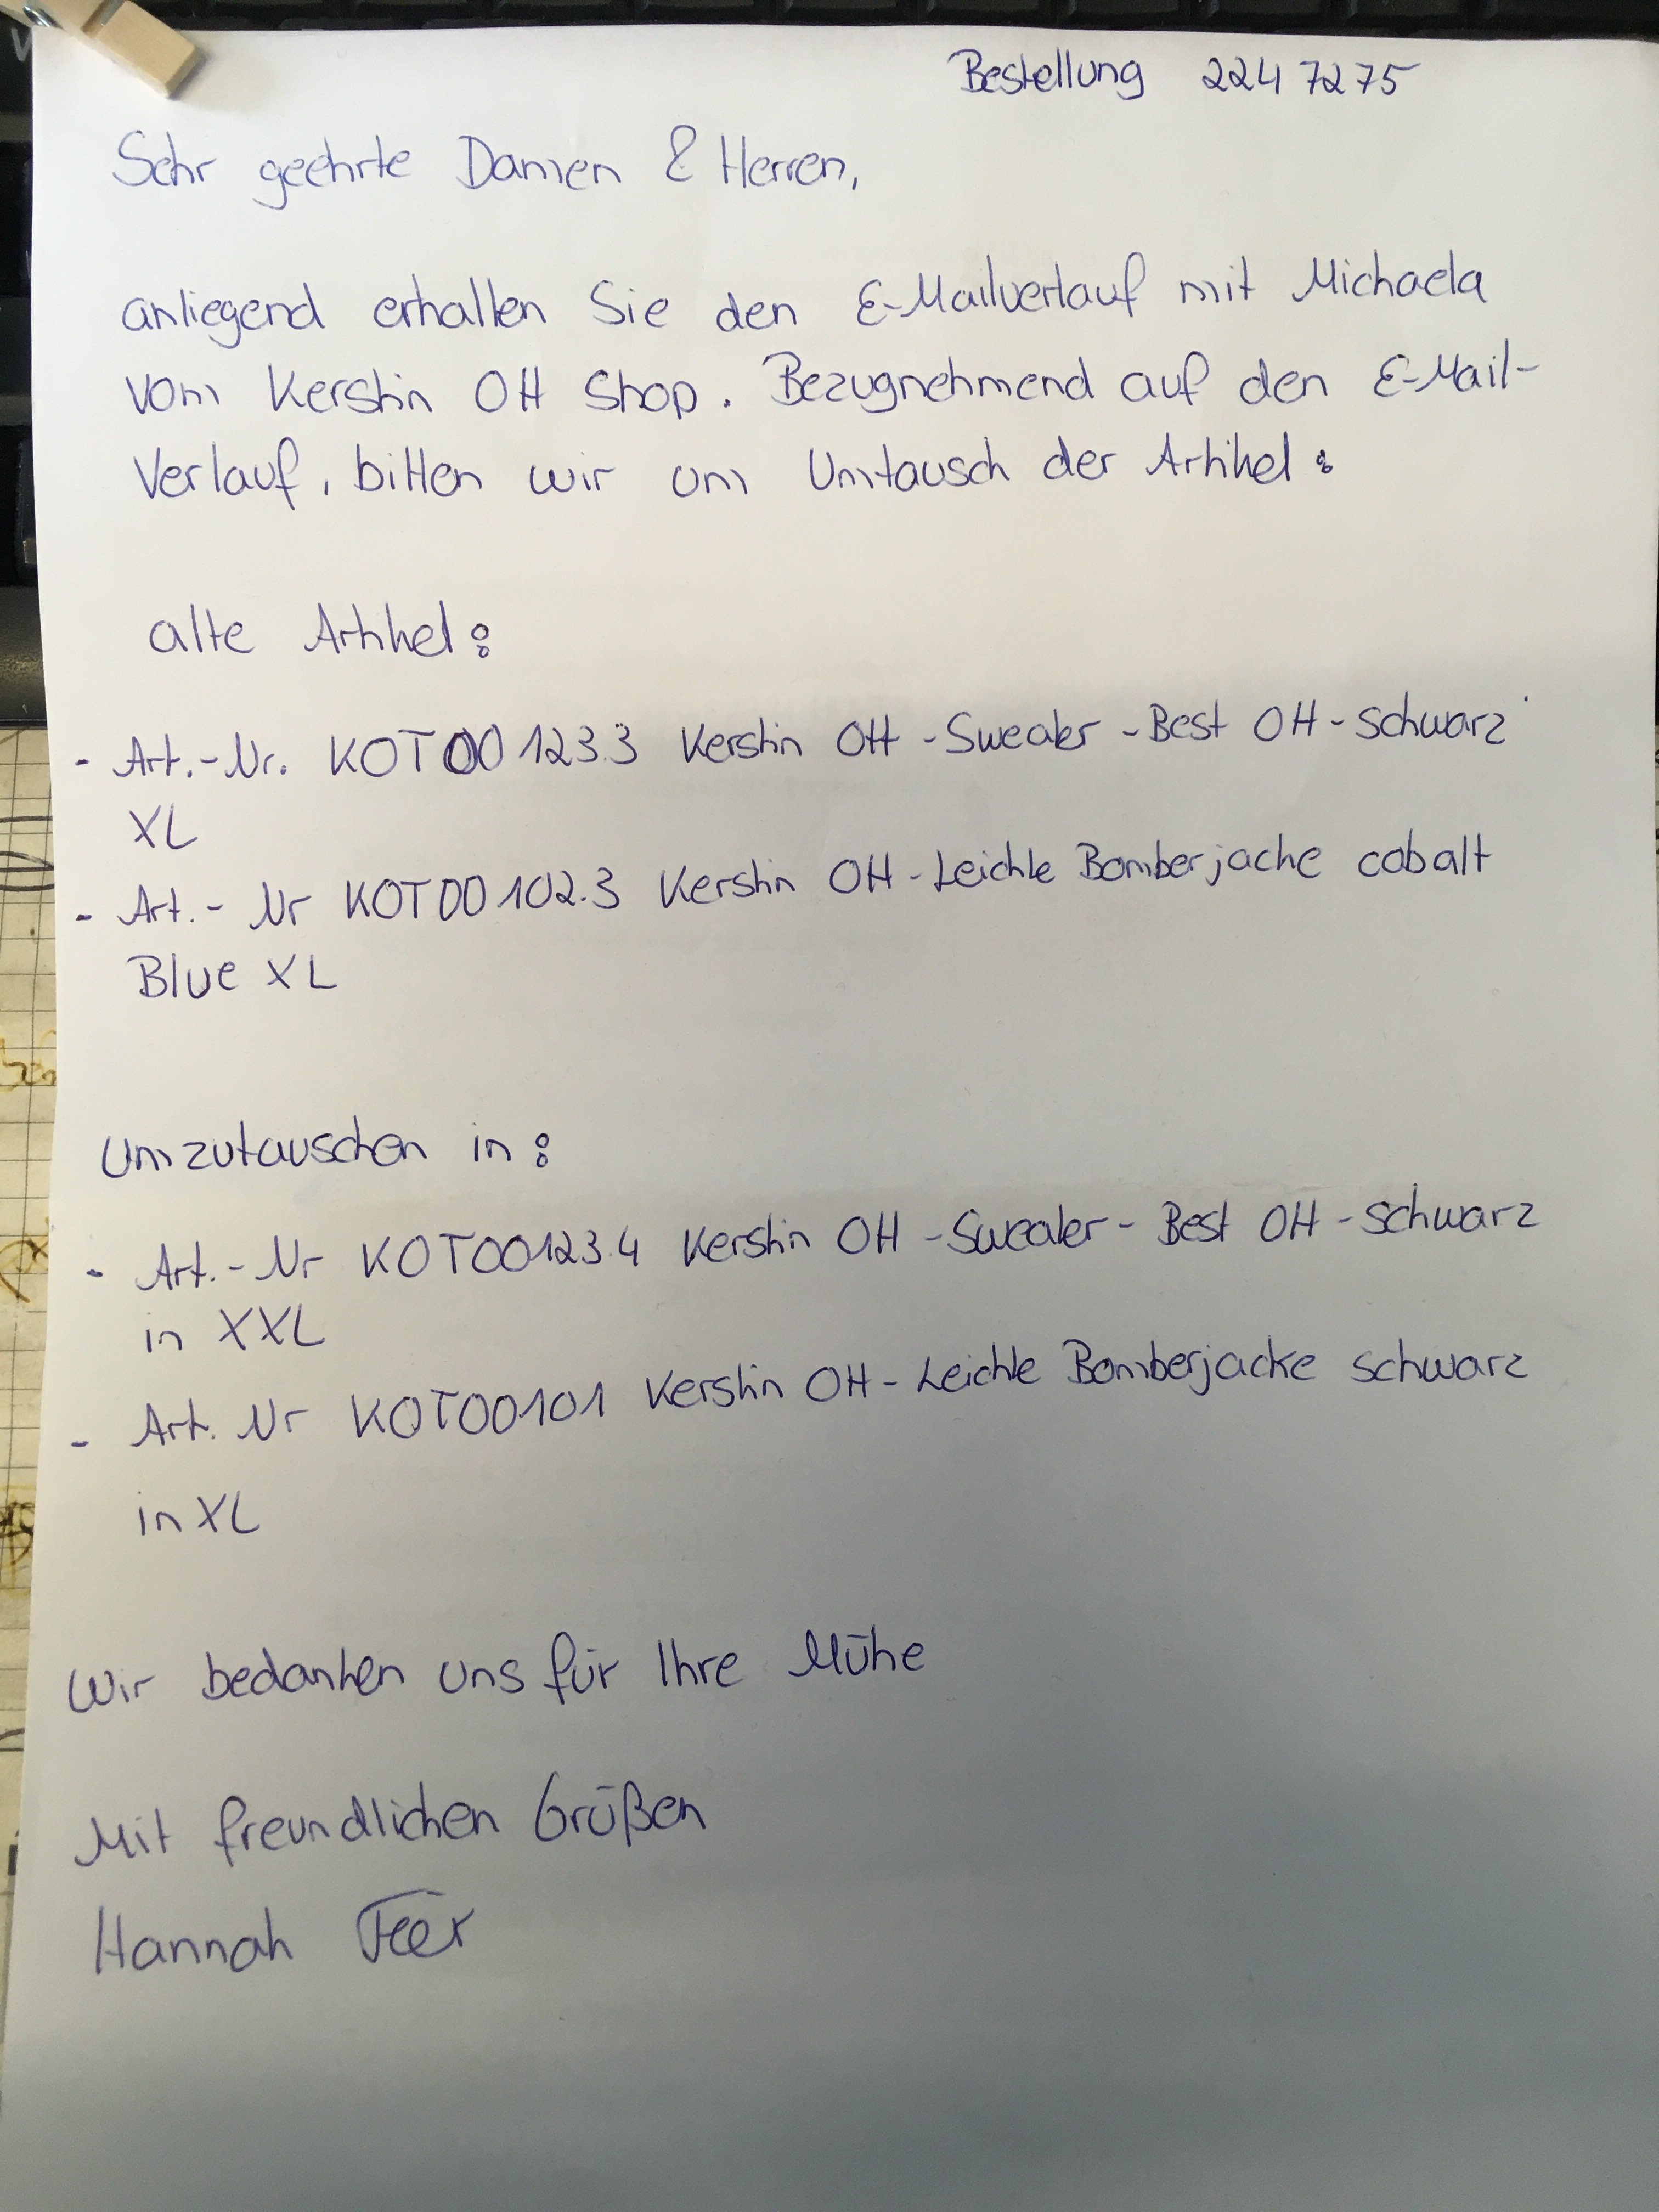 Bestellung 2247275
Sehr geehrte Damen & Herren,
anliegend erhalten Sie den E-Mailverlauf mit Michaela
vom Kerstin OH Shop. Bezugnehmend auf den E-Mail-
Verlauf, bitten wir um Umtausch der Artikel:
alte Artikel:
- Art.-Nr. KOT00123.3 Kerstin OH-Sweater-Best OH-schwarz
XL
- Art.-Nr KOT00102.3 Kerstin OH-Leichte Bomberjacke cobalt
Blue XL
Umzutauschen in:
- Art.-Nr KOT00123.4 Kerstin OH-Sweater-Best OH-schwarz
in XXL
- Art. Nr KOT00101 Kerstin OH-Leichte Bomberjacke schwarz
in XL
Wir bedanken uns für Ihre Mühe
Mit freundlichen Grüßen
Hannah